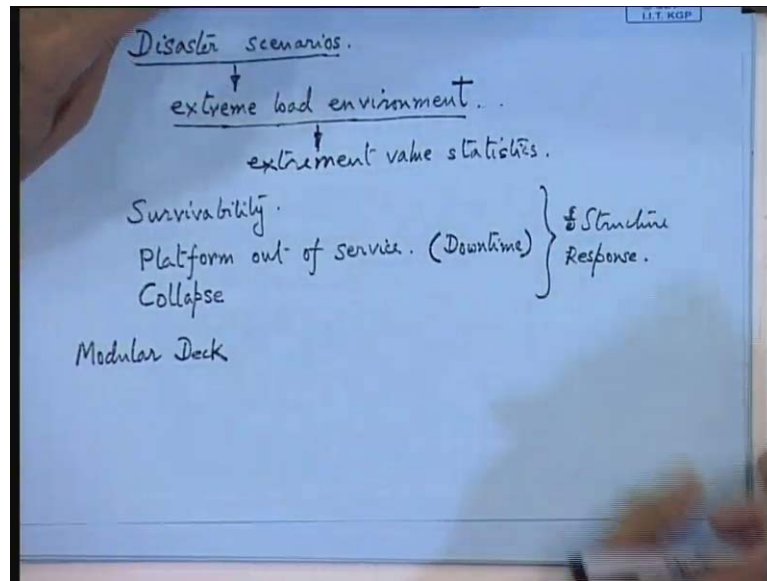 I.I.T. KGP
Disaster scenarios.
extreme load environment..
extrement value statistics.
Survivability.
Platform out of service. (Downtime)
Collapse
Structure
Response.
Modular Deck